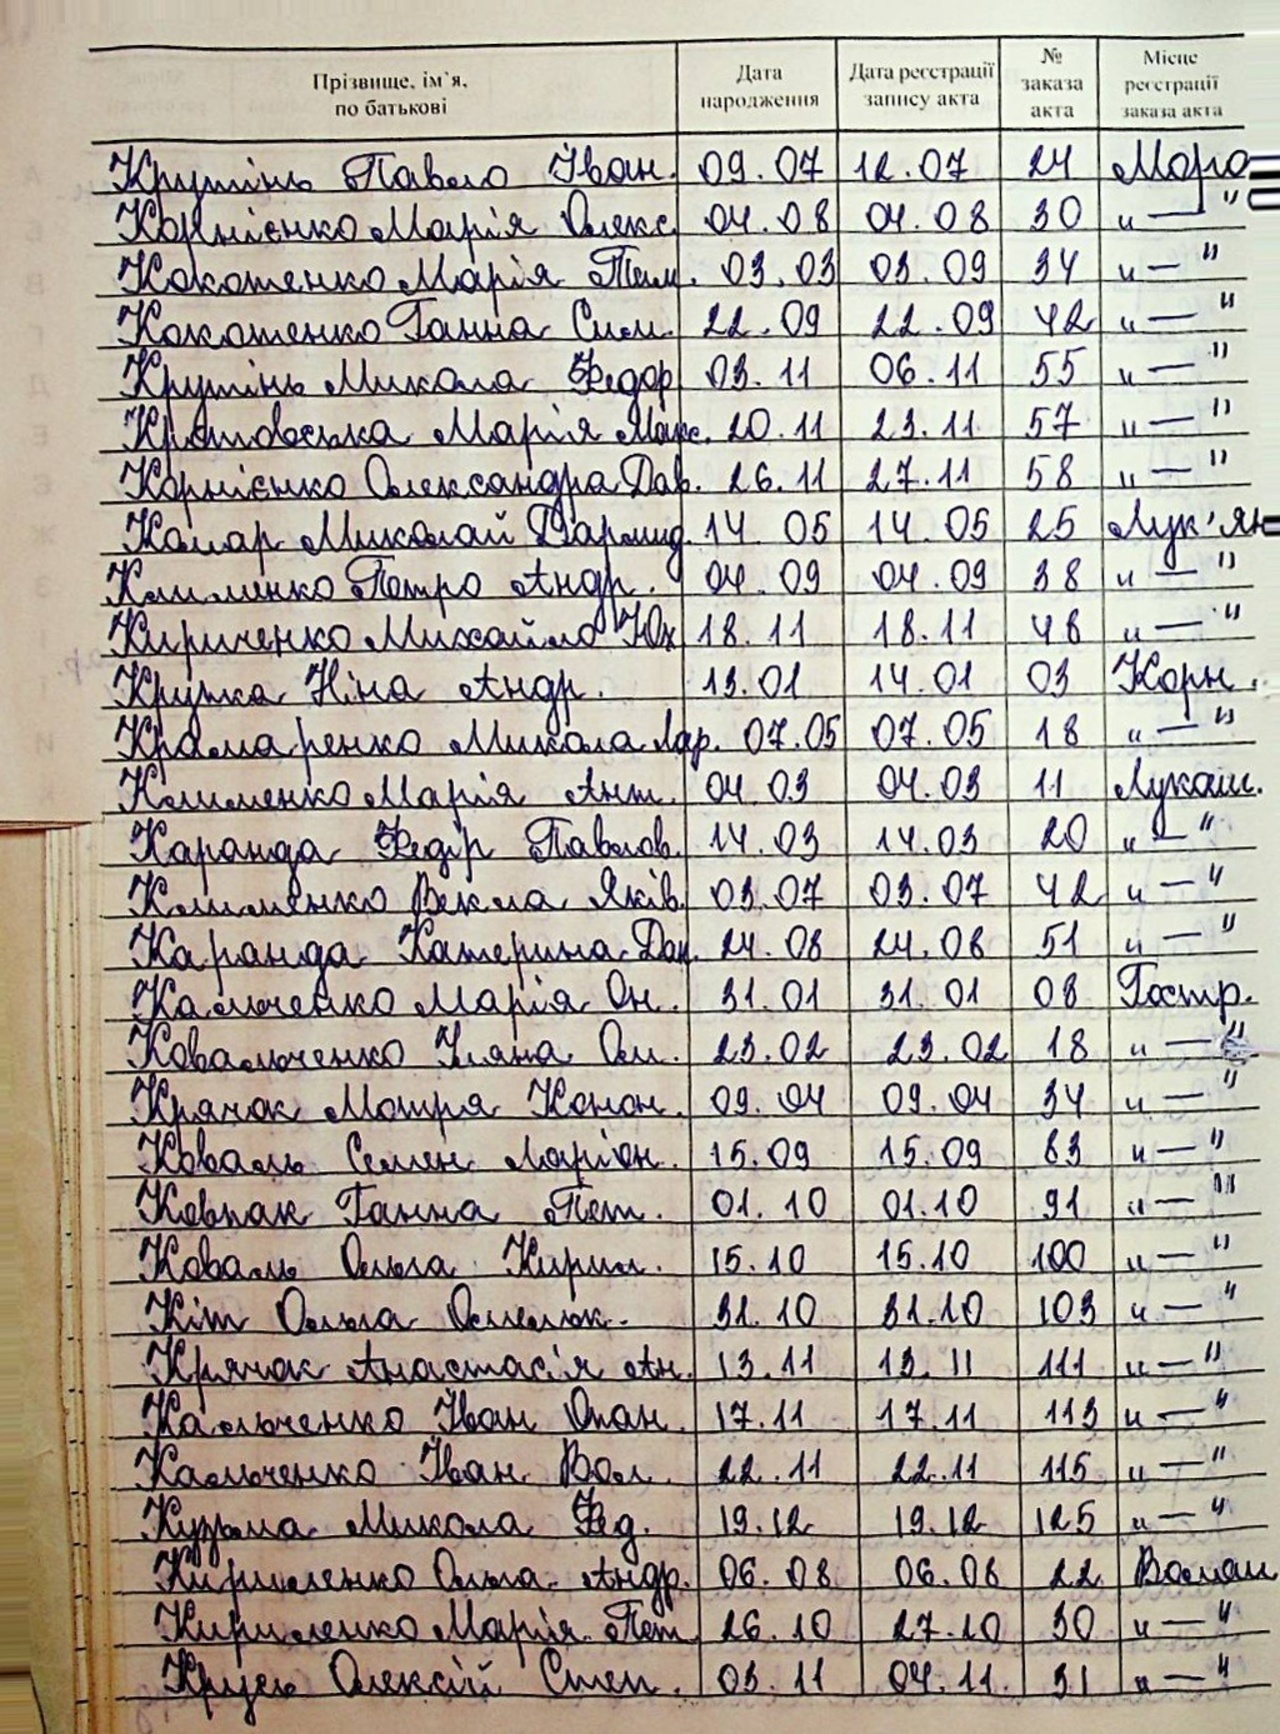 Прізвище, ім`я, по батькові Дата народження Дата реєстрації запису акта № заказа акта Місце реєстрації заказа акта
Крутінь Павло Іван. 09.07 12.07 24 Моро
Корнієнко Марія Олекс. 04.08 04.08 30 "—"
Кокотенко Марія Тим. 03.03 03.09 34 "—"
Кокотенко Ганна Сим. 22.09 22.09 42 "—"
Крутінь Микола Федор 03.11 06.11 55 "—"
Марія Макс. 20.11 23.11 57 "—"
Корнієнко Олександра Дав. 26.11 27.11 58 "—"
Комар Миколай 14 05 14.05 25 Лук'ян
Клименко Петро Андр. 04.09 04.09 38 "—"
Кириченко Михайло Юх 18.11 18.11 48 "—"
Ніна Андр. 13.01 14.01 03 Корн.
Крамаренко Микола Лар. 07.05 07.05 18 "—"
Клименко Марія Ант. 04.03 04.03 11 Лукаш.
Каранда Федір Павлов. 14.03 14.03 20 "—"
Клименко Векла Яків. 03.07 03.07 42 "—"
Каранда Катерина Дан. 24.08 24.08 51 "—"
Кальченко Марія Он. 31.01 31.01 08 Гостр.
Ковальченко Уляна Ом. 23.02 23.02 18 "—"
Крячок Мотря Конон. 09.04 09.04 34 "—"
Коваль Семен Маріон. 15.09 15.09 83 "—"
Ковпак Ганна Пет. 01.10 01.10 91 "—"
Коваль Ольга Кирил. 15.10 15.10 100 "—"
Кіт Ольга Омелюк. 31.10 31.10 103 "—"
Крячок Анастасія Ан. 13.11 13.11 111 "—"
Кальченко Іван Опан. 17.11 17.11 113 "—"
Кальченко Іван Вол. 22.11 22.11 115 "—"
Кузьма Микола Фед. 19.12 19.12 125 "—"
Кириленко Ольга Андр. 06.08 06.08 22
Кириленко Марія Пет. 26.10 27.10 30 "—"
Олексій Степ. 03.11 04.11 31 "—"